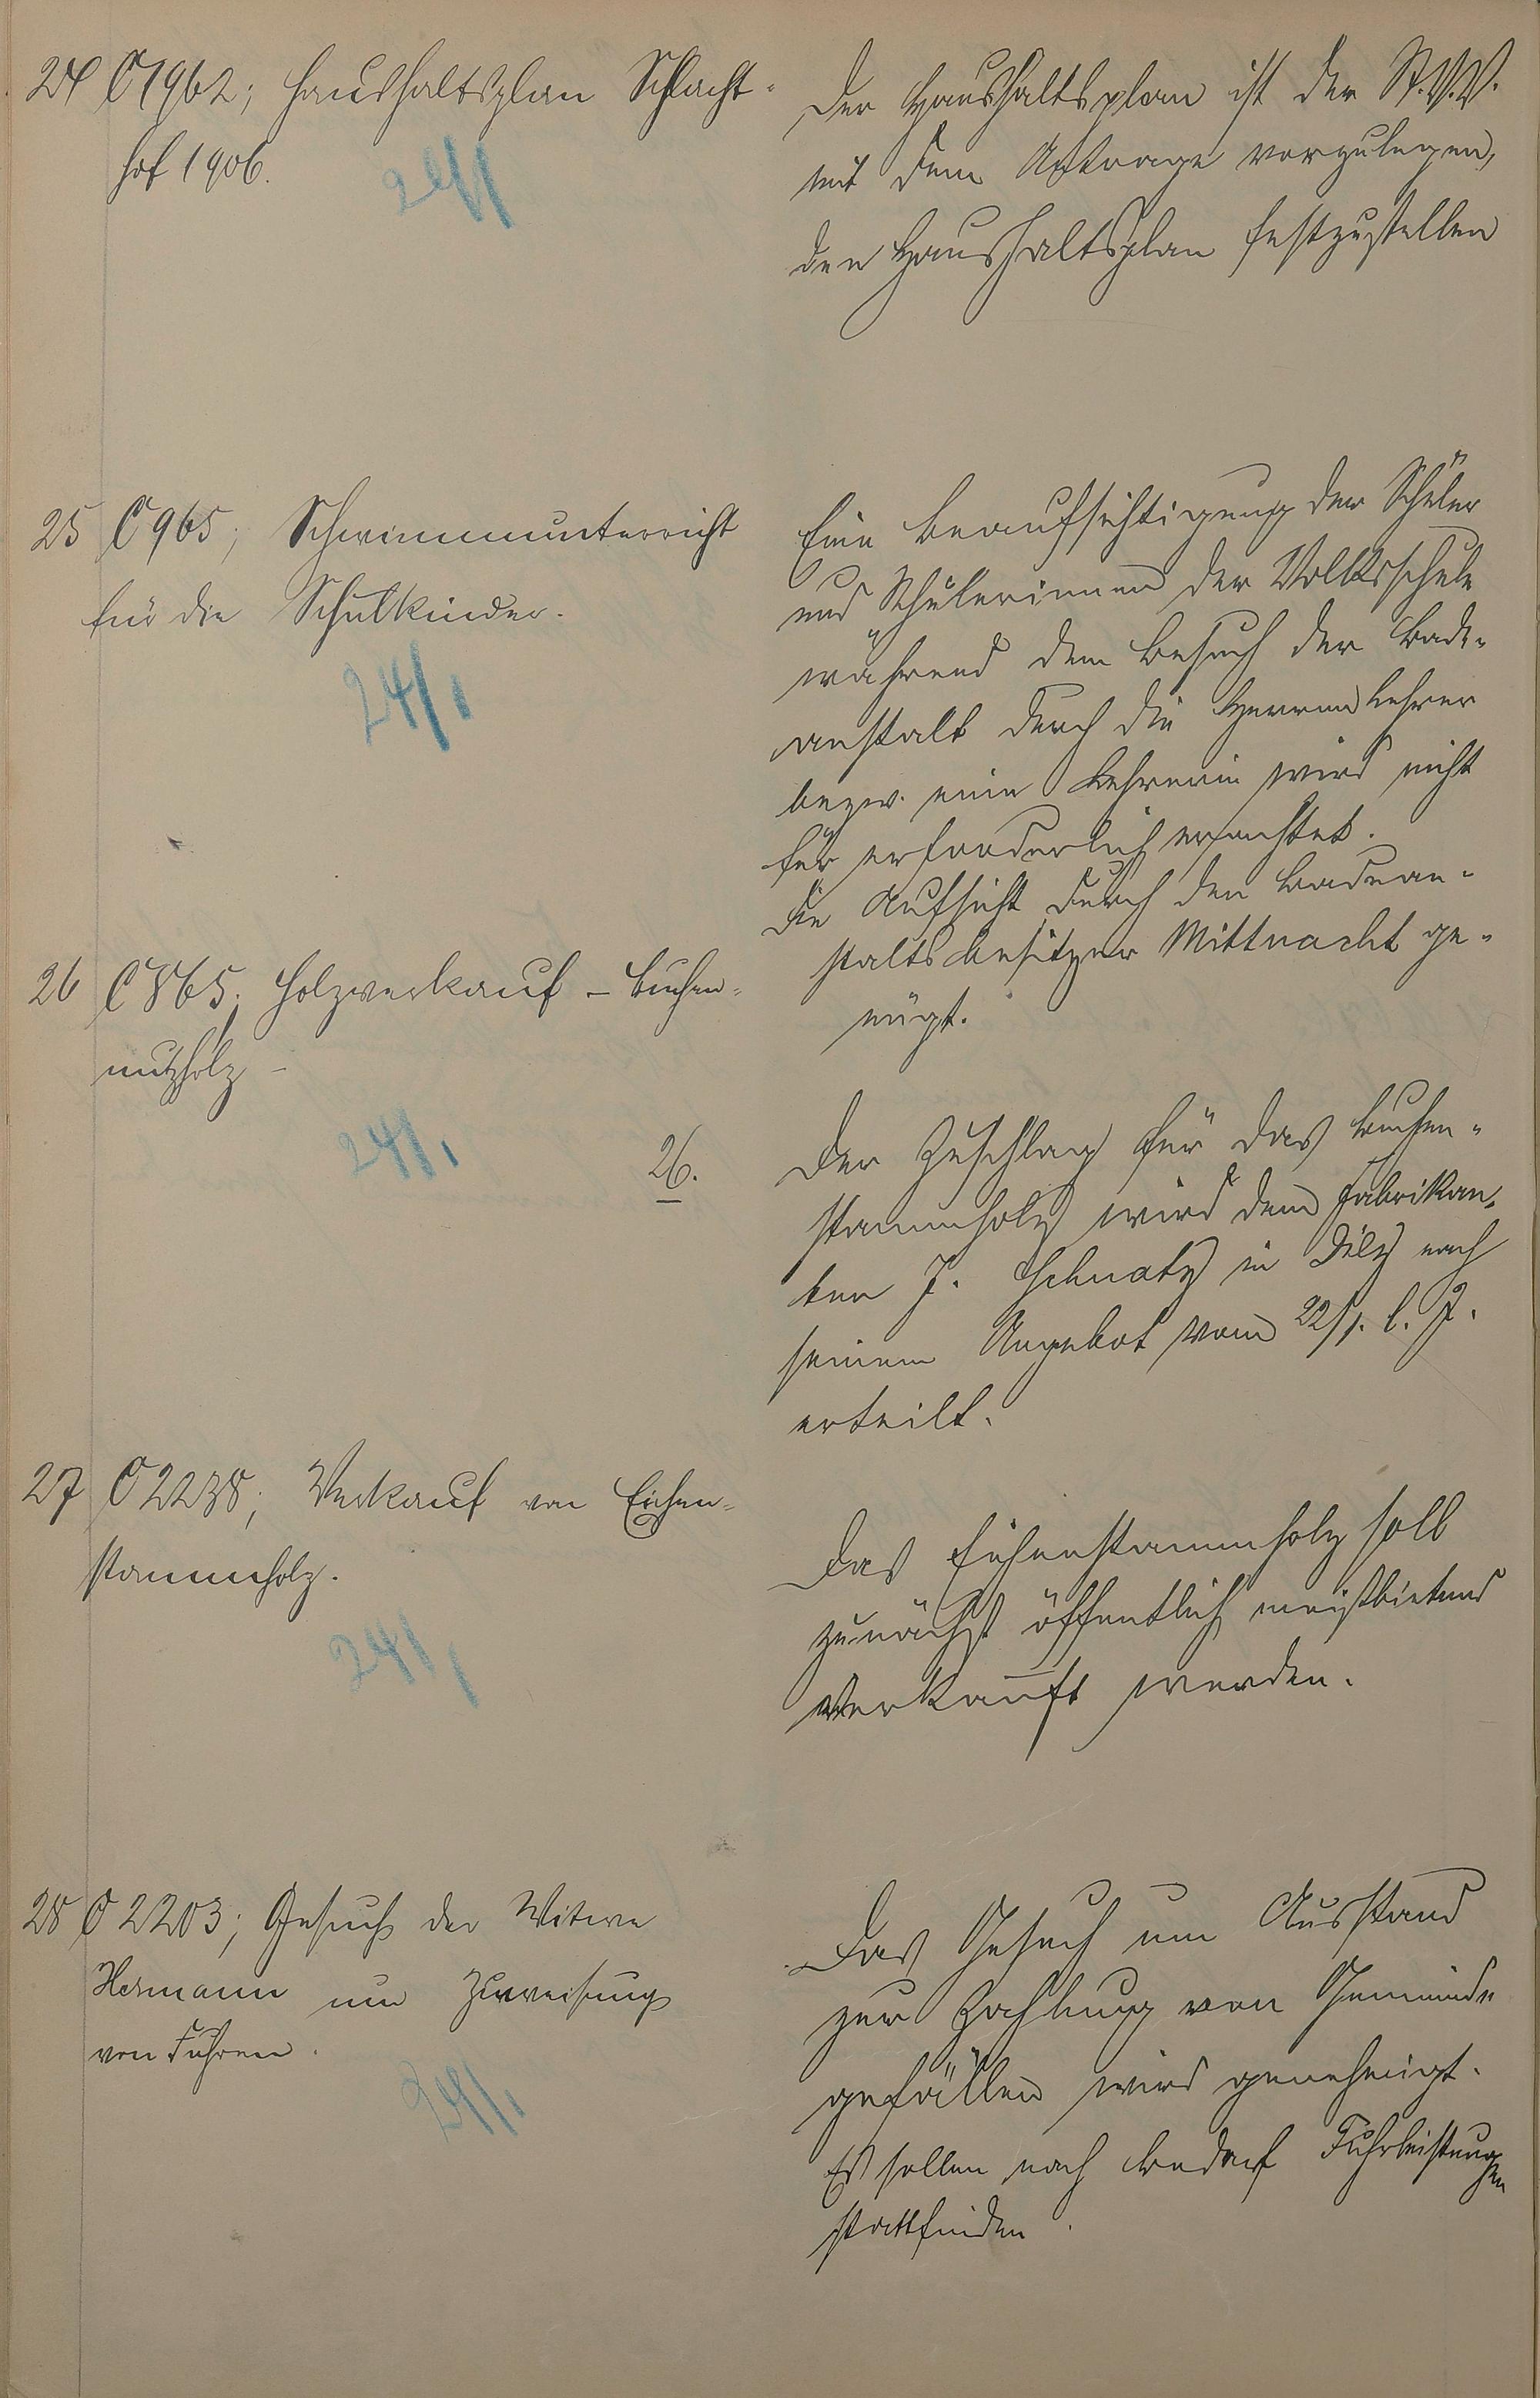 24 C 1962; Haushaltsplan Schlacht-
hof 1906.
24/1
Der Haushaltsplan ist der St.V.V.
mit dem Antrage vorzulegen,
den Haushaltsplan festzustellen
25 C 965; Schwimmunterricht
für die Schulkinder.
24/1
Eine Beaufsichtigung der Schüler
und Schülerinnen der Volksschule
während dem Besuch der Bade-
anstalt durch die Herren Lehrer
bezw. eine Lehrerin wird nicht
für erforderlich erachtet.
Die Aufsicht durch den Badean-
staltsbesitzer Mittnacht ge-
nügt.
26 C 865; Holzverkauf - Buchen-
nutzholz -
24/1.
26.
Der Zuschlag für das Buchen-
stammholz wird dem Fabrikan-
ten J. Schnatz in Dietz nach
seinem Angebot vom 22/1. l. J.
erteilt.
27 C 2238; Verkauf von Eichen-
stammholz.
24/1
Das Eichenstammholz soll
zunächst öffentlich meistbietend
verkauft werden.
28 C 2203; Gesuch der Witwe
Hermann um Zuweisung
von Fuhren.
24/1.
Das Gesuch um Ausstand
zur Zahlung von Gemeinde
gefällen wird genehmigt.
Es sollen nach Bedarf Fuhrleistungen
stattfinden.